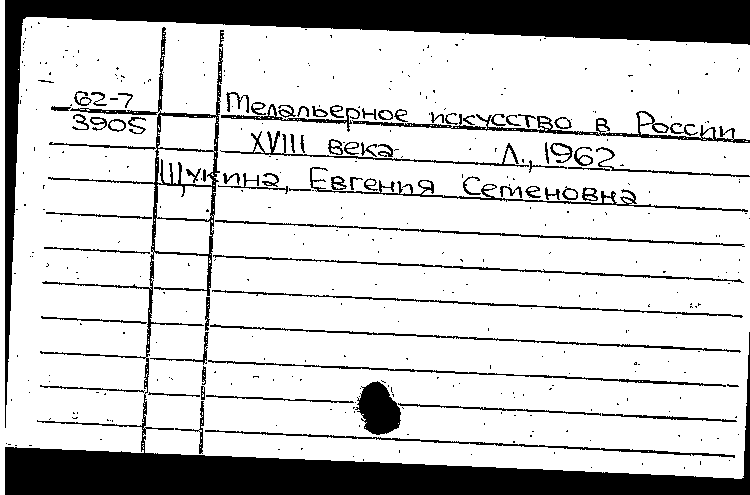 62-7
3905
Медальерное искусство в России
XVIII века Л., 1962
Щукина, Евгения Семеновна